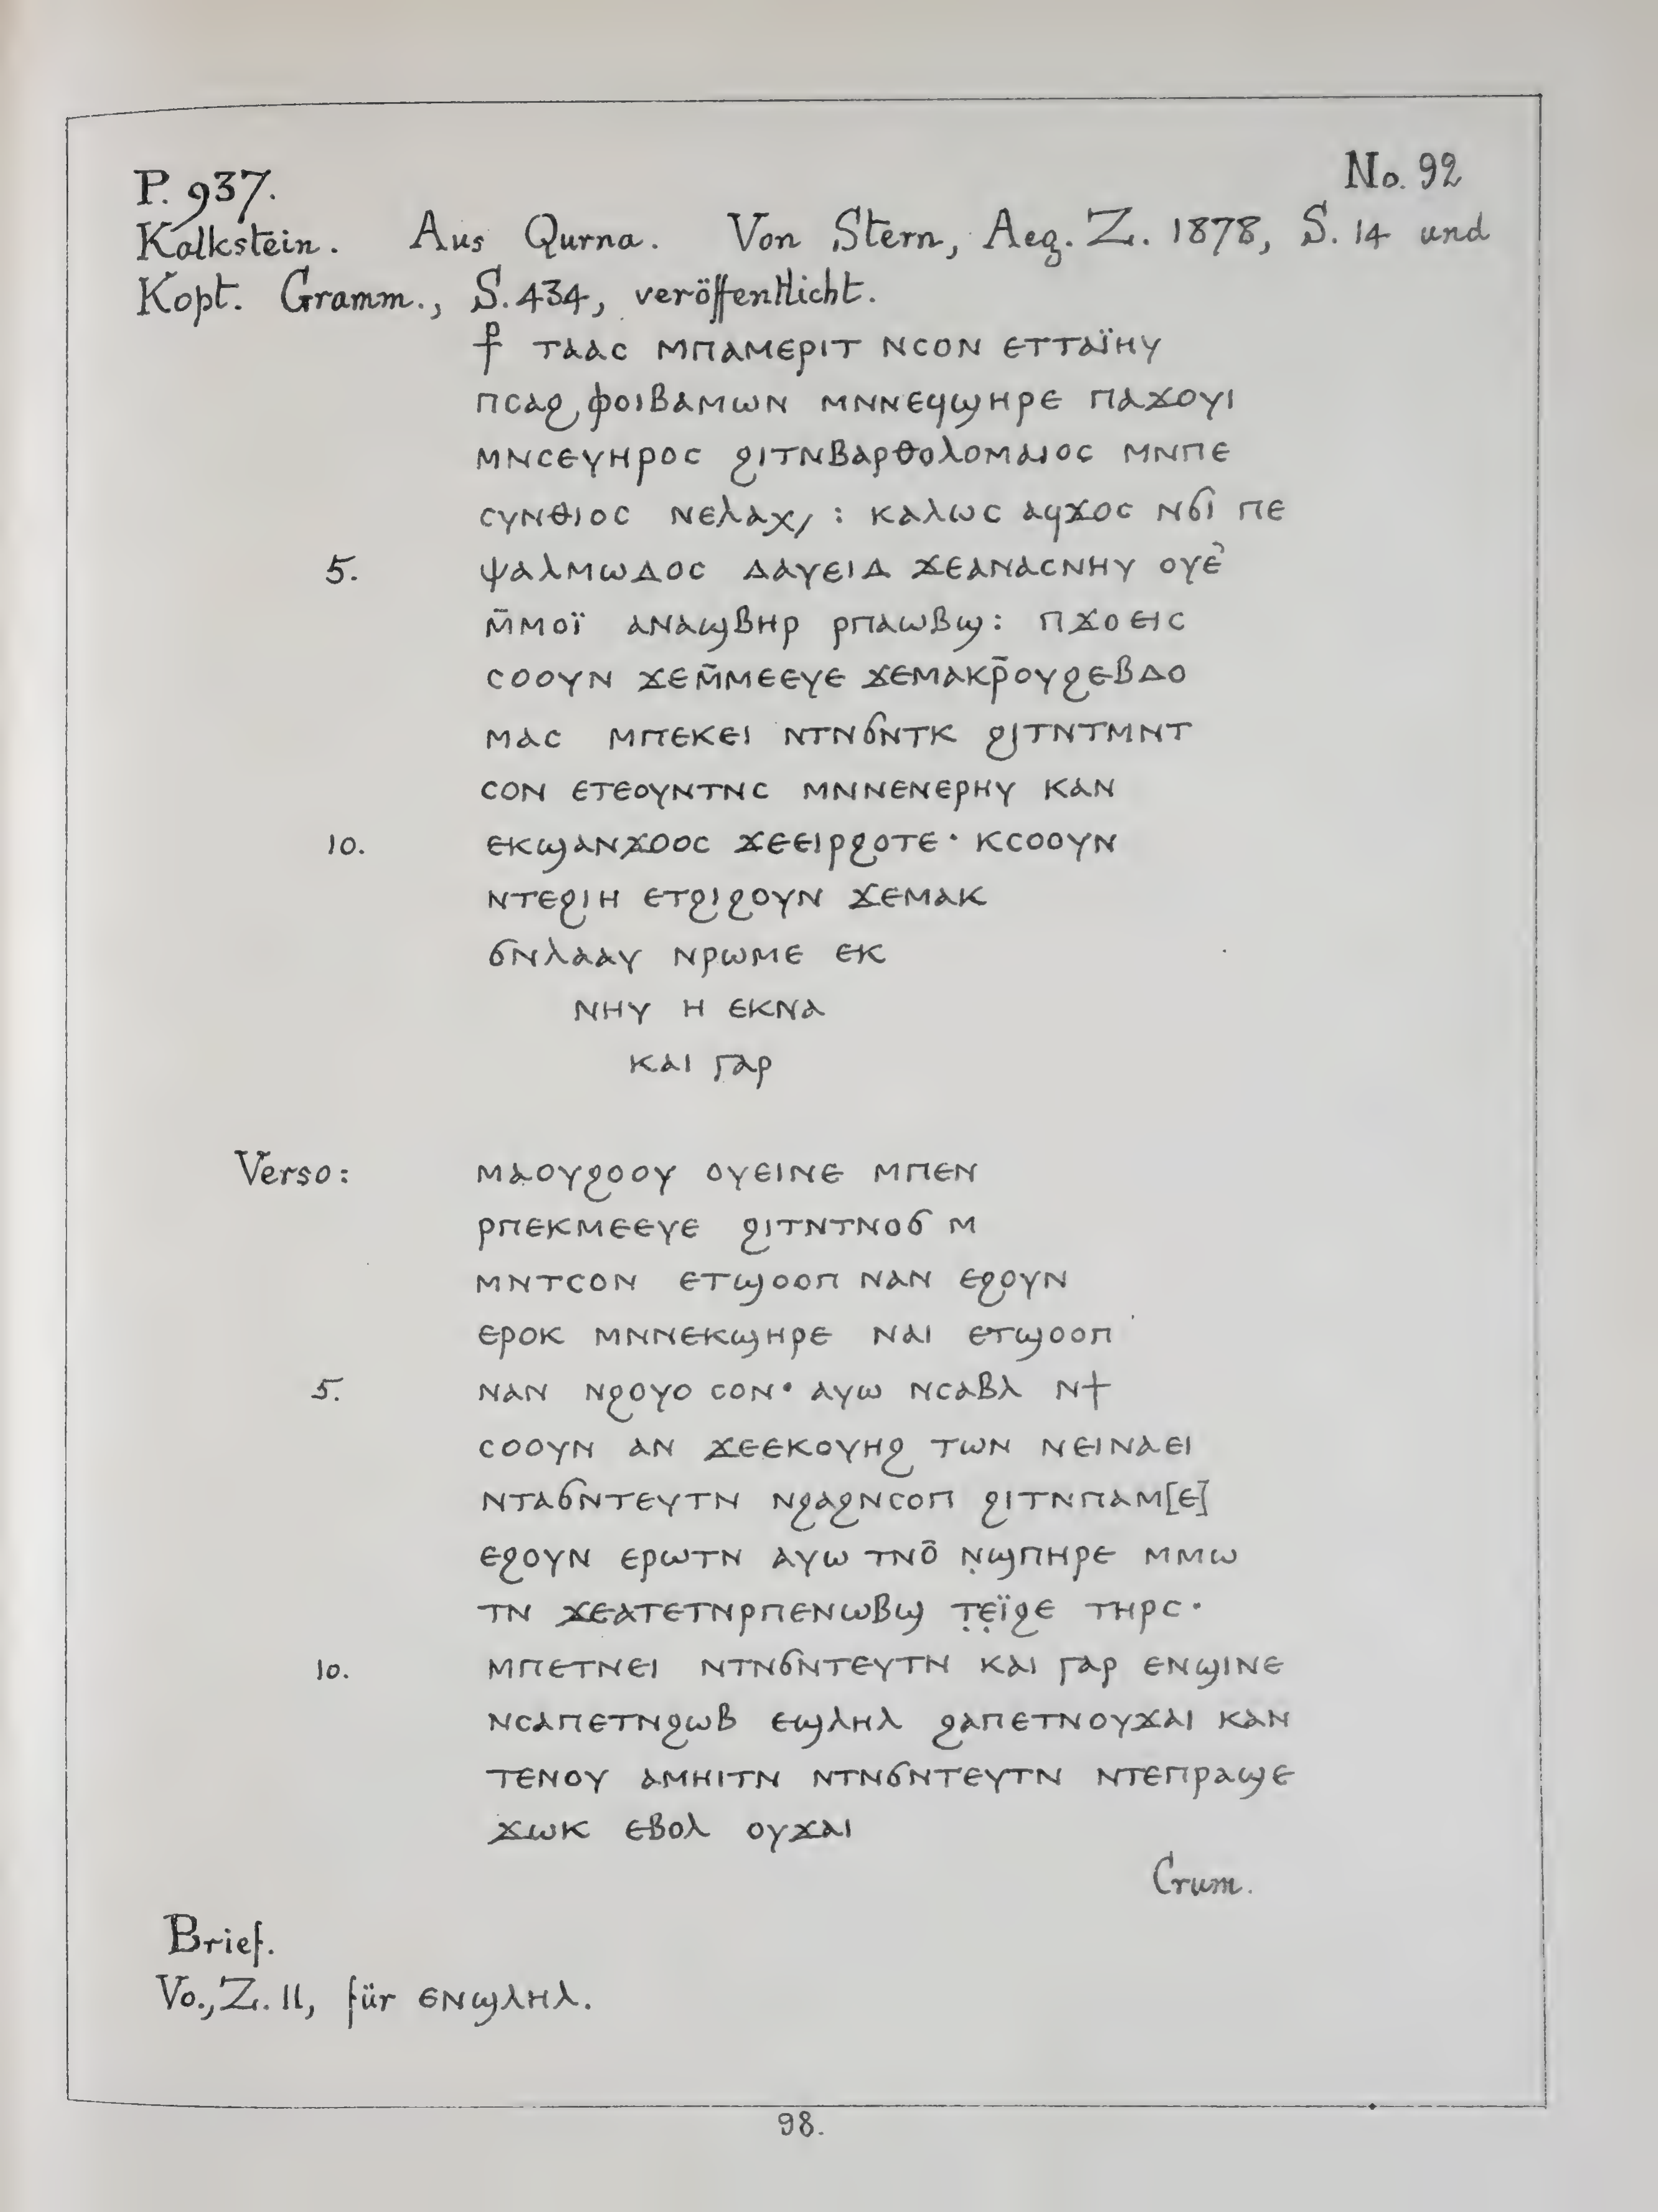 No. 92
P. 937.
Kalkstein. Aus Qurna. Von Stern, Aeg. Z. 1878, S. 14 und
Kopt. Gramm., S. 434, veröffentlicht.
⳨ ⲧⲁⲁⲥ ⲙⲡⲁⲙⲉⲣⲓⲧ ⲛⲥⲟⲛ ⲉⲧⲧⲁⲓ̈ⲏⲩ
ⲡⲥⲁϩ ⲫⲟⲓⲃⲁⲙⲱⲛ ⲙⲛⲛⲉϥϣⲏⲣⲉ ⲡⲁϫⲟⲩⲓ
ⲙⲛⲥⲉⲩⲏⲣⲟⲥ ϩⲓⲧⲛⲃⲁⲣⲑⲟⲗⲟⲙⲁⲓⲟⲥ ⲙⲛⲡⲉ
ⲥⲩⲛⲑⲓⲟⲥ ⲛⲉⲗⲁⲭ/ : ⲕⲁⲗⲱⲥ ⲁϥϫⲟⲥ ⲛϭⲓ ⲡⲉ
5. ⲯⲁⲗⲙⲱⲇⲟⲥ ⲇⲁⲩⲉⲓⲇ ϫⲉⲁⲛⲁⲥⲛⲏⲩ ⲟⲩⲉ᾽
ⲙ̄ⲙⲟⲓ̈ ⲁⲛⲁϣⲃⲏⲣ ⲣⲡⲁⲱⲃϣ : ⲡϫⲟⲉⲓⲥ
ⲥⲟⲟⲩⲛ ϫⲉⲙ̄ⲙⲉⲉⲩⲉ ϫⲉⲙⲁⲕⲣ̄ⲟⲩϩⲉⲃⲇⲟ
ⲙⲁⲥ ⲙⲡⲉⲕⲉⲓ ⲛⲧⲛϭⲛⲧⲕ ϩⲓⲧⲛⲧⲙⲛⲧ
ⲥⲟⲛ ⲉⲧⲉⲟⲩⲛⲧⲛⲥ ⲙⲛⲛⲉⲛⲉⲣⲏⲩ ⲕⲁⲛ
10. ⲉⲕϣⲁⲛϫⲟⲟⲥ ϫⲉⲉⲓⲣϩⲟⲧⲉ · ⲕⲥⲟⲟⲩⲛ
ⲛⲧⲉϩⲓⲏ ⲉⲧϩⲓϩⲟⲩⲛ ϫⲉⲙⲁⲕ
ϭⲛⲗⲁⲁⲩ ⲛⲣⲱⲙⲉ ⲉⲕ
ⲛⲏⲩ ⲏ ⲉⲕⲛⲁ
ⲕⲁⲓ ⲅⲁⲣ
Verso: ⲙⲁⲟⲩϩⲟⲟⲩ ⲟⲩⲉⲓⲛⲉ ⲙⲡⲉⲛ
ⲣⲡⲉⲕⲙⲉⲉⲩⲉ ϩⲓⲧⲛⲧⲛⲟϭ ⲙ
ⲙⲛⲧⲥⲟⲛ ⲉⲧϣⲟⲟⲡ ⲛⲁⲛ ⲉϩⲟⲩⲛ
ⲉⲣⲟⲕ ⲙⲛⲛⲉⲕϣⲏⲣⲉ ⲛⲁⲓ ⲉⲧϣⲟⲟⲡ
5. ⲛⲁⲛ ⲛϩⲟⲩⲟ ⲥⲟⲛ · ⲁⲩⲱ ⲛⲥⲁⲃⲗ ⲛϯ
ⲥⲟⲟⲩⲛ ⲁⲛ ϫⲉⲉⲕⲟⲩⲏϩ ⲧⲱⲛ ⲛⲉⲓⲛⲁⲉⲓ
ⲛⲧⲁϭⲛⲧⲉⲩⲧⲛ ⲛϩⲁϩⲛⲥⲟⲡ ϩⲓⲧⲛⲡⲁⲙ[ⲉ]
ⲉϩⲟⲩⲛ ⲉⲣⲱⲧⲛ ⲁⲩⲱ ⲧⲛⲟ̄ ⲛ̣ϣⲡⲏⲣⲉ ⲙⲙⲱ
ⲧⲛ ϫⲉⲁⲧⲉⲧⲛⲣⲡⲉⲛⲱⲃϣ ⲧ̣ⲉ̣ⲓ̈ϩⲉ ⲧⲏⲣⲥ ·
10. ⲙⲡⲉⲧⲛⲉⲓ ⲛⲧⲛϭⲛⲧⲉⲩⲧⲛ ⲕⲁⲓ ⲅⲁⲣ ⲉⲛϣⲓⲛⲉ
ⲛⲥⲁⲡⲉⲧⲛϩⲱⲃ ⲉϣⲗⲏⲗ ϩⲁⲡⲉⲧⲛⲟⲩϫⲁⲓ ⲕⲁⲛ
ⲧⲉⲛⲟⲩ ⲁⲙⲏⲓⲧⲛ ⲛⲧⲛϭⲛⲧⲉⲩⲧⲛ ⲛⲧⲉⲡⲣⲁϣⲉ
ϫⲱⲕ ⲉⲃⲟⲗ ⲟⲩϫⲁⲓ
Crum.
Brief.
Vo., Z. 11, für ⲉⲛϣⲗⲏⲗ.
98.